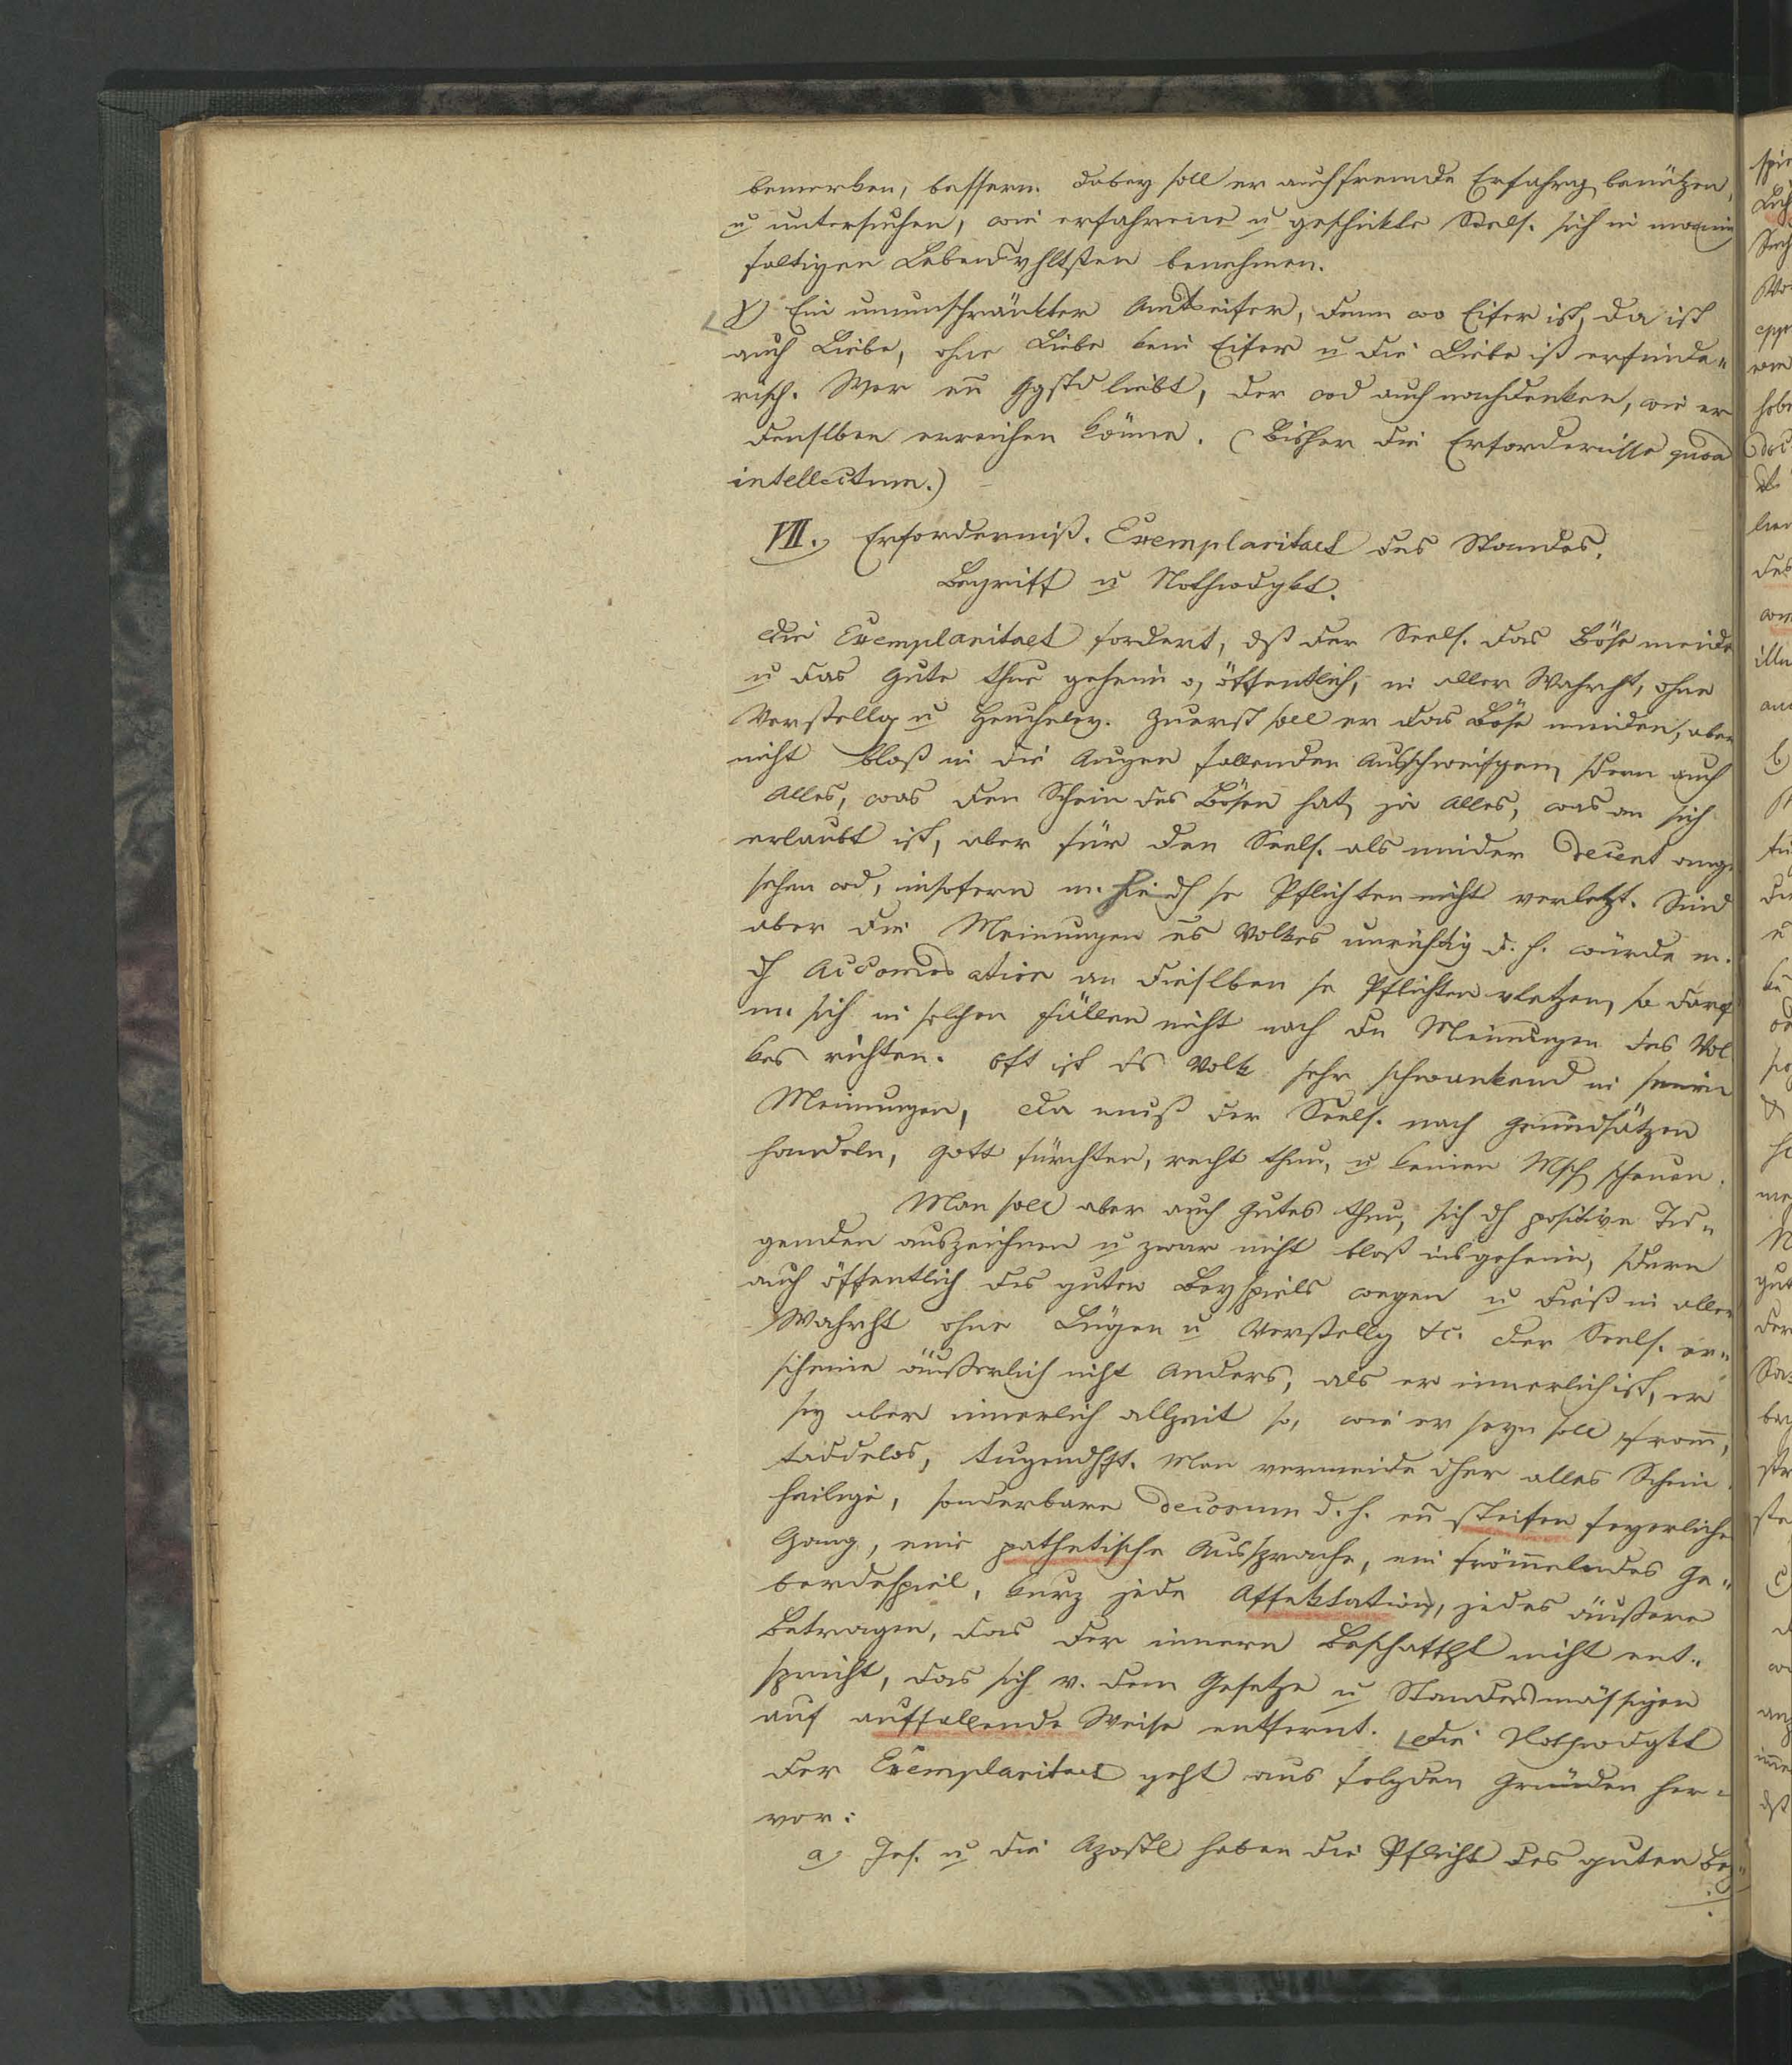 bemerken, bessern. Dabey soll er auch fremde Erfahrg benützen,
u untersuchen, wie erfahrene u geschikte Seels. sich in mannig
faltigen Lebensvhltßen benehmen.
γ) Ein unumschränkter Amtseifer, denn wo Eifer ist, da ist
auch Liebe, ohne Liebe kein Eifer u die Liebe ist erfinde„
risch. Wer en̄ Ggstd liebt, der wd auch nachdenken, wie er
denslben erreichen könne. (Bisher die Erfordernisse quoad
intellectum.)
VII. Erforderniß. Exemplaritaet des Standes.
Begriff u Nothwdgkt.
Die Exemplaritaet fordert, dß der Seels. das Böse meide
u das Gute thue geheim o, öffentlich, in aller Wahrht, ohne
Verstellg u Heucheley. Zuerst soll er das Böse meiden, aber
nicht bloß in die Augen fallenden Ausschweifgen, sdern auch
Alles, was den Schein des Bösen hat, ja Alles, was an sich
erlaubt ist, aber für den Seels. als minder decent ange
sehen wd, insofern m. hiedh se Pflichten nicht verletzt. Sind
aber die Meinungen es Volkes unrichtig d. h. würde m.
dh Accomodation an dieslben se Pflichten vletzen, so darf
m. sich in solchen Fällen nicht nach dn Meinungen des Vol
kes richten. Oft ist ds Volk sehr schwankend in seinen
Meinungen, da muß der Seels. nach Grundsätzen
handeln, Gott fürchten, recht thun, u keinen Msch scheuen.
Man soll aber auch Gutes thun, sich dh positive Tu„
genden auszeichnen u zwar nicht bloß insgeheim, sdern
auch öffentlich des guten Beyspiels wegen u dieß in aller
Wahrht ohne Lügen u Verstellg &c. Der Seels. er„
scheine äußerlich nicht Anders, als er innerlich ist, er
sey aber innerlich allzeit so, wie er seyn soll from̄,
taddelos, tugendhft. Man vermeide dher alles Schein
heilige, sonderbare decorum d. h. en̄ steifen feyerlichen
Gang, eine pathetische Aussprache, ein fröm̄elndes Ge„
berdespiel, kurz jede Affektation, jedes äußere
Betragen, das der innern Beschaffht nicht ent„
spricht, das sich v. dem Gesetze u Standesmässigen
auf auffallende Weise entfernt. Die Nothwdgkt
der Exemplaritaet geht aus folgden Gründen her„
vor:
a) Jes. u die Apostl haben die Pflicht des guten Bey„